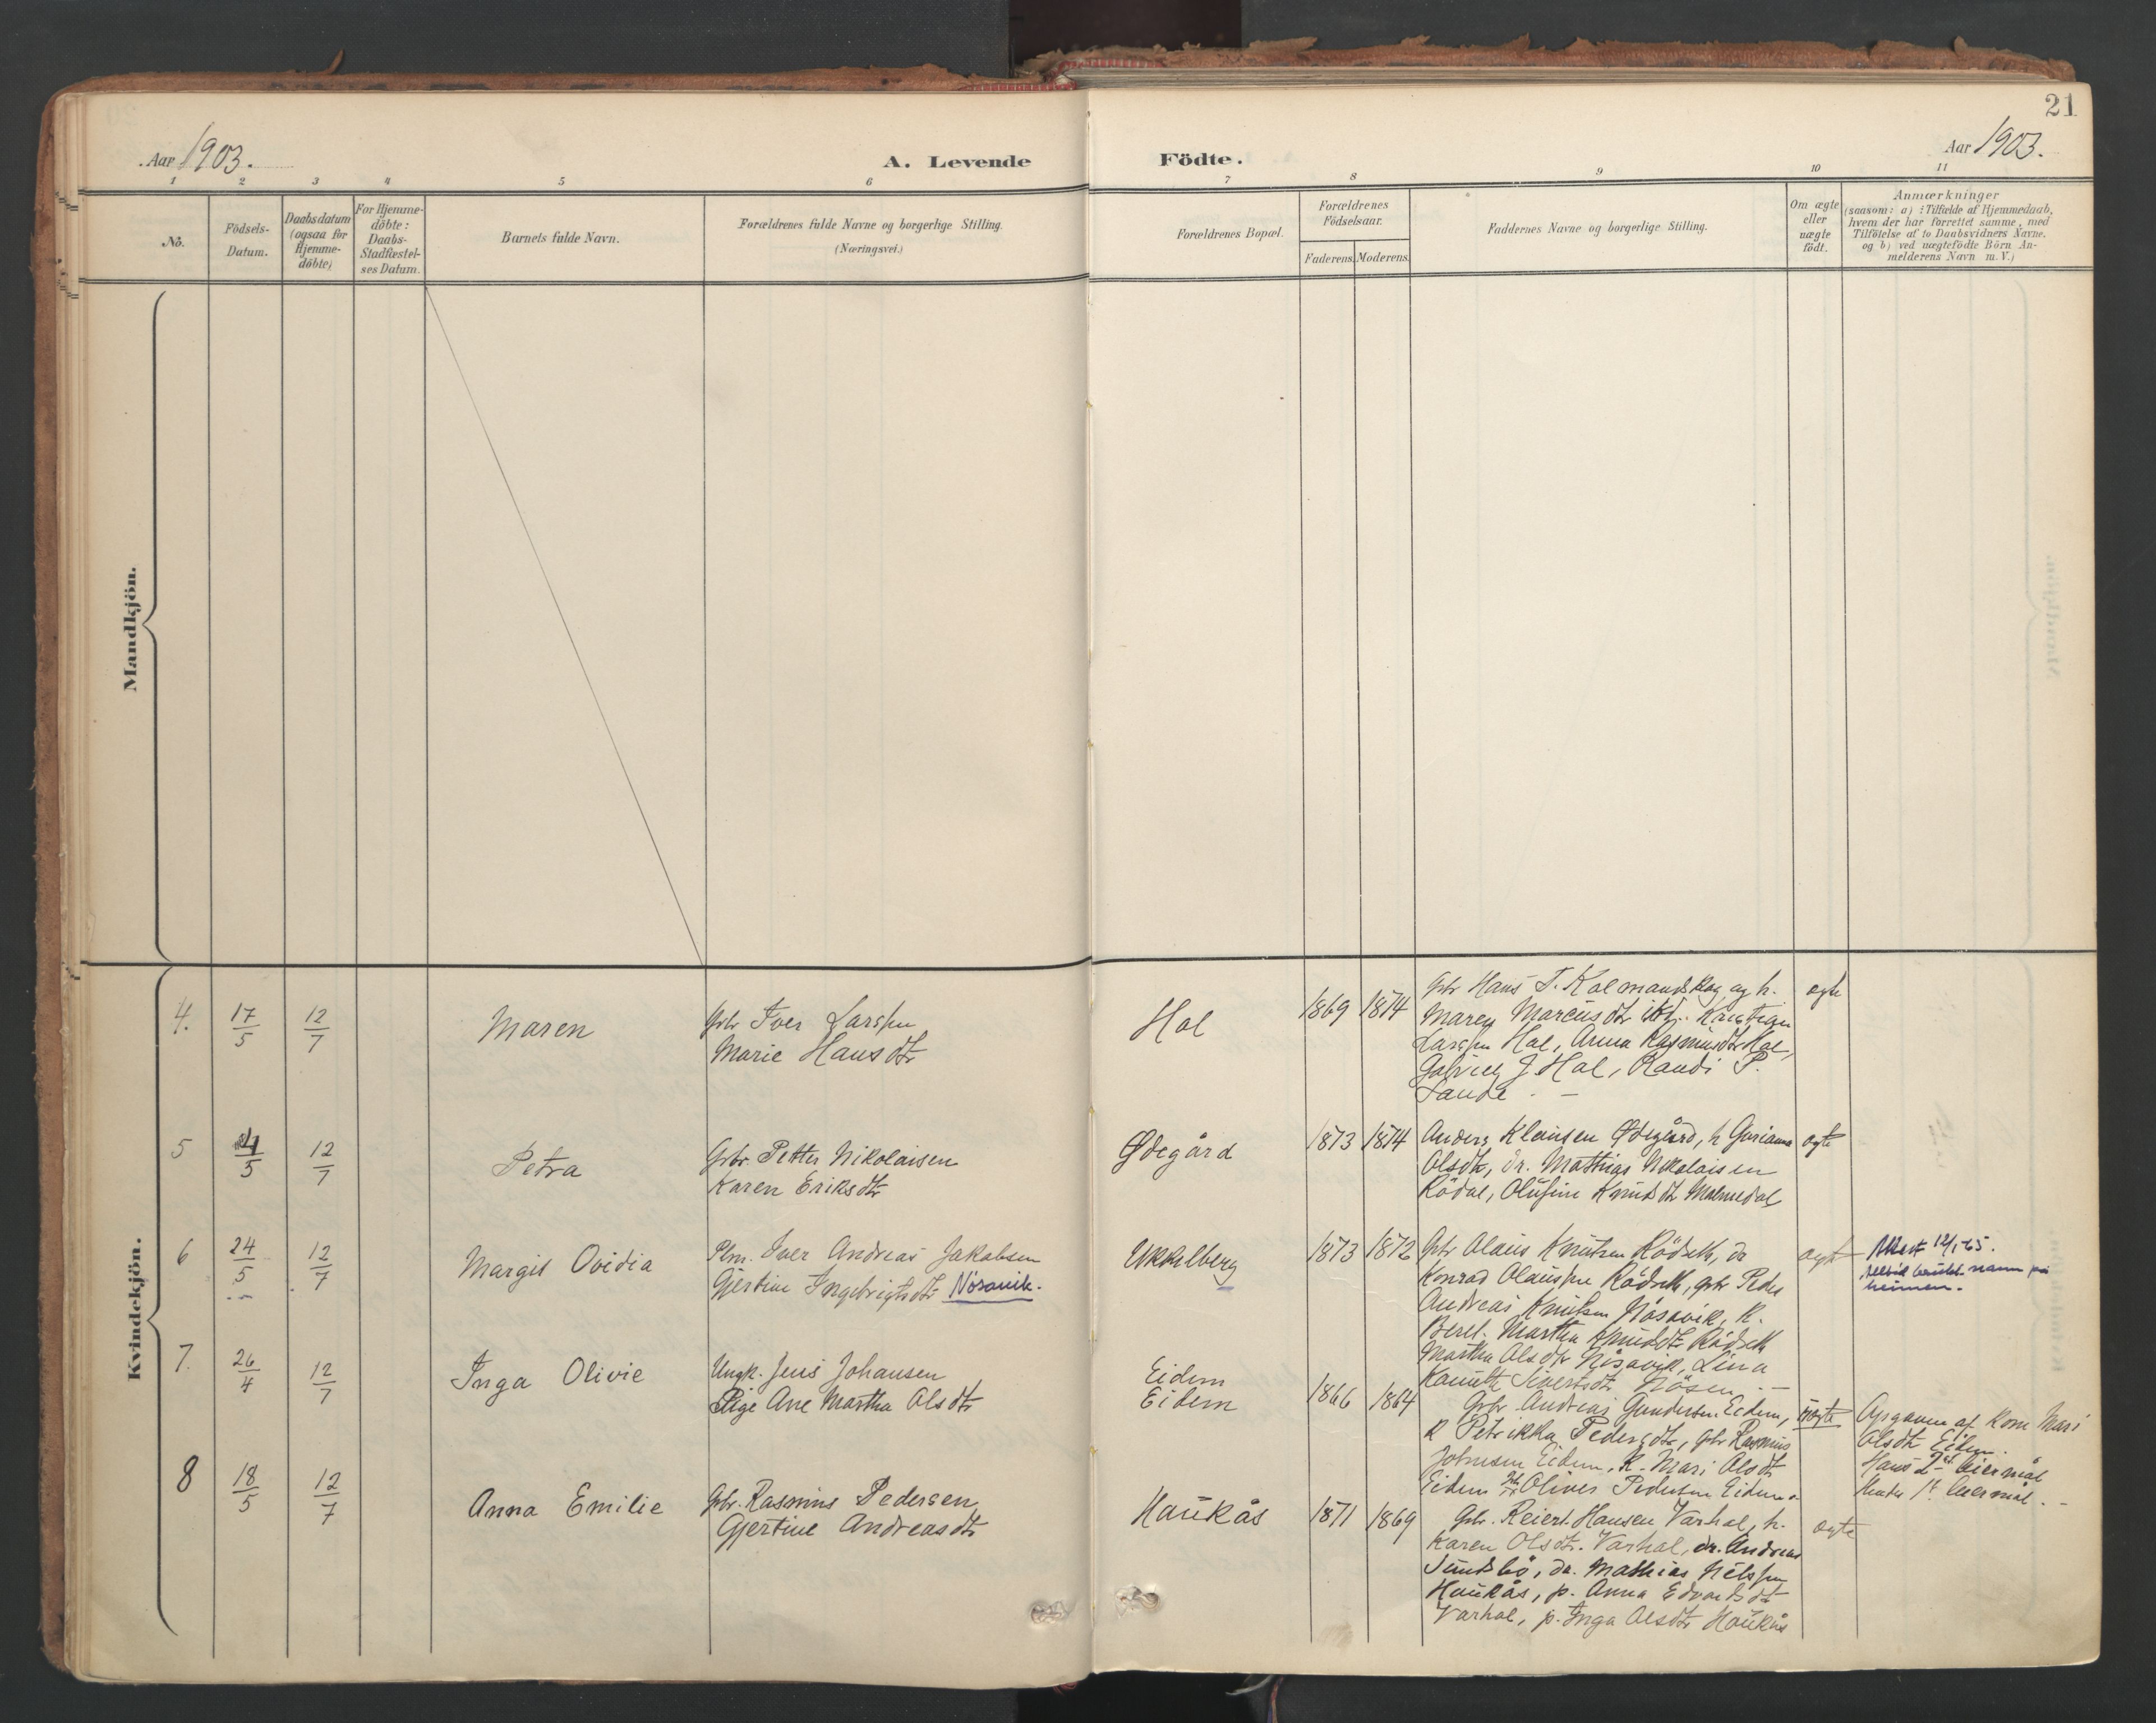 21
Aar 1903.
A. Levende
Födte.
Aar 1903.
1 2 3 4 5 6 7 8 9 10 11
No.
Födsels-
Datum.
Daabsdatum
(ogsaa for
Hjemme-
döbte)
For Hjemme-
döbte:
Daabs-
Stadfæstel-
ses Datum.
Barnets fulde Navn.
Forældrenes fulde Navne og borgerlige Stilling.
(Næringsvei.)
Forældrenes Bopæl.
Forældrenes
Födselsaar.
Faderens. Moderens.
Faddernes Navne og borgerlige Stilling.
Om ægte
eller
uægte
födt.
Anmærkninger
(saasom: a) i Tilfælde af Hjemmedaab,
hvem der har forrettet samme, med
Tilföielse af to Daabsvidners Navne.
og b) ved uægtefödte Börn An-
melderens Navn m. V.)
Mandkjön.
Kvindekjön.
4. 17/5 12/7
Maren
Gbr Iver Larssen
Marie Hansdtr
Hol
1869 1874
Gbr Hans T. Kolmandskog og h.
Maren Marcusdtr ibd. Kristian
Larssen Hol, Anna Rasmusdtr Hol,
Gabriel J. Hol, Randi P.
Sande
ægte
5 4/5 12/7
Petra
Gbr. Petter Nikolaisen
Karen Eriksdtr
Ødegård
1873 1874
Anders Klausen Ødegård, h Gurianna
Olsdtr, dr. Mathias Nikolaisen
Rödal, Olufine Knutsdtr Malmedal
ægte
6 24/5 12/7
Margit Ovidia
Plm. Iver Andreas Jakobsen
Gjertine Ingebrigtsdtr Nösavik.
Ukkelberg
1873 1872
Gbr Olaus Knutsen Rödseth, dr
Konrad Olaussen Rödseth, gbr Peder
Andreas Knutsen Nösavik, k.
Berel. Martha Knudsdtr Rödseth
Martha Olsdtr Nösavik, Lina
Kanutte Sivertsdtr Nösen
ægte
Attest 12/1-65.
Alltid brukt namn på
heimen.
7. 26/4 12/7
Inga Olivie
Ungk. Jens Johansen
Pige Ane Martha Olsdtr
Eidem
Eidem
1866 1864
Gbr Andreas Gundersen Eidem,
k Petrikka Pedersdtr, gbr Rasmus
Johnsen Eidem, k. Mari Olsdtr
Eidem Oliver Pedersen Eidem
uægte
Opgaven af kone Mari
Olsdtr Eidem.
Hans 2det leiermål
Hendes 1st leiermål.
8 18/5 12/7
Anna Emilie
Gbr. Rasmus Pedersen
Gjertine Andreasdtr
Haukås
1871 1869
Gbr. Reiert Hansen Varhol, h.
Karen Olsdtr. Varhol, dr. Andreas
Sundsbö, dr. Mathias Nilssen
Haukås, p. Anna Edvardsdtr
Varhol, p. Inga Olsdtr Haukås
ægte